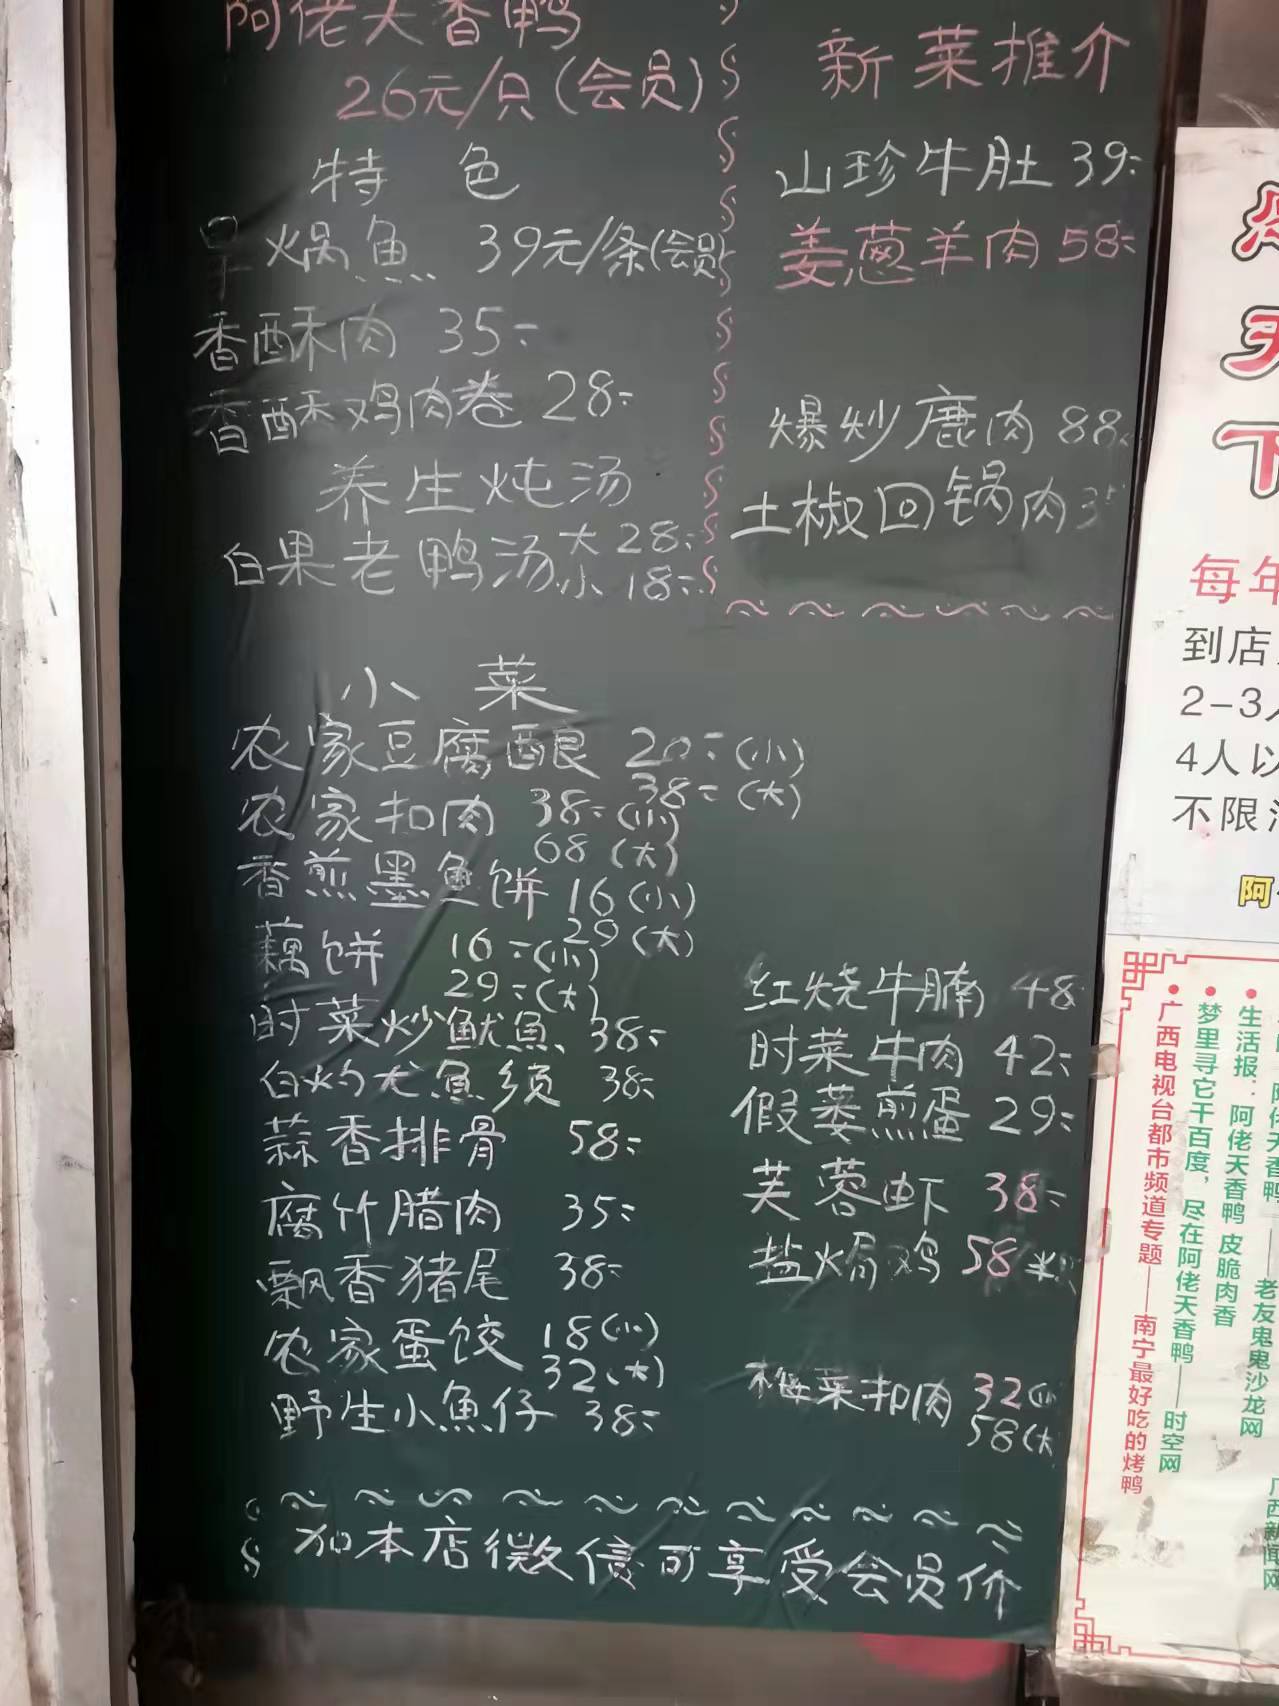 阿佬天香鸭
26元/只(会员)
特色
焗鱼 39元/条(会员)
香酥肉 35
香酥鸡肉卷 28
养生炖汤
白果老鸭汤 大 28
小 18
新菜推介
山珍牛肚 39
姜葱羊肉 58
爆炒鹿肉 88
土椒回锅肉 35
小菜
农家豆腐酿 20(小)
38(大)
农家扣肉 38(小)
68(大)
香煎墨鱼饼 16(小)
29(大)
藕饼 16(小)
29(大)
时菜炒鱿鱼 38
白灼尤鱼须 38
蒜香排骨 58
腐竹腊肉 35
飘香猪尾 38
农家蛋饺 18(小)
32(大)
野生小鱼仔 38
红烧牛腩 48
时菜牛肉 42
假蒌煎蛋 29
芙蓉虾 38
盐焗鸡 58
梅菜扣肉 32(小
58(大
加本店微信可享受会员价
天
下
每年
到店
2-3人
4人以
不限
阿
生活报：阿佬天香鸭 皮脆肉香
梦里寻它千百度，尽在阿佬天香鸭——时空网
广西电视台都市频道专题——南宁最好吃的烤鸭
老友鬼鬼沙龙网
广西新闻网